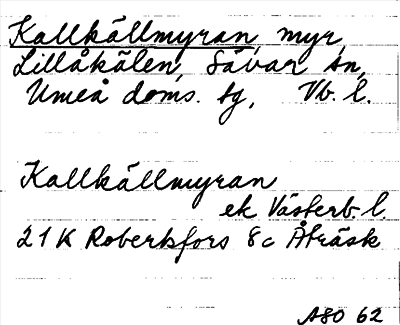 Kallkällmyran, myr,
Lillåkälen, Sävar sn,
Umeå doms. tg, Vb. l.
Kallkällmyran
ek Västerb. l.
21K Robertsfors 8c Åträsk
ASO 62